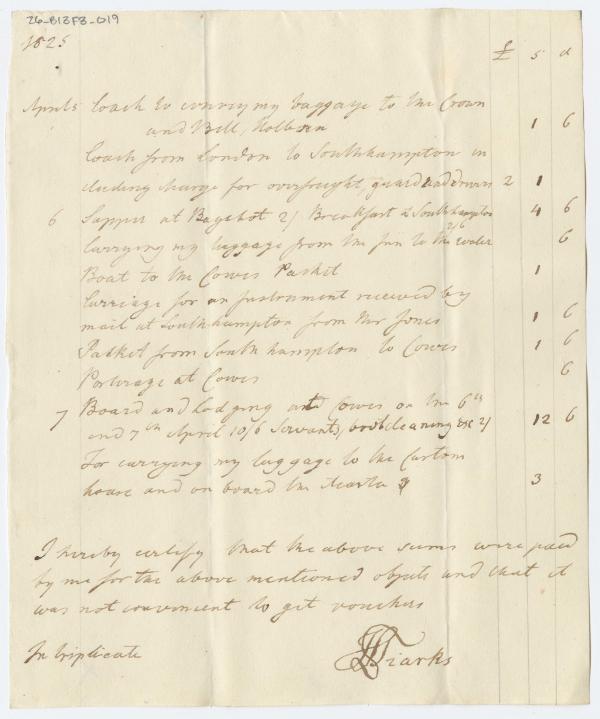 26-B13F3-019
1825 £ s d
April 5 Coach to convey my baggage to the Crown
and Bell, Holborn 1 6
Coach from London to Southhampton in
cluding charge for overfreight, guard and drivers 2 1
6 Supper at Bagshot 2/ Breakfast at Southhampton 2/6 4 6
Carrying my luggage from the Inn to the water 6
Boat to the Cowes Packet 1
Carriage for an Instrument received by
mail at Southhampton from Mr Jones 1 6
Packet from Southhampton to Cowes 1 6
Porterage at Cowes 6
7 Board and Lodging at Cowes on the 6th
and 7th April 10/6 Servants, boot cleaning &c 2/ 12 6
For carrying my luggage to the Custom
house and on board the 3
I hereby certify that the above sums were paid
by me for the above mentioned objects and that it
was not convenient to get vouchers
In triplicate Tiarks